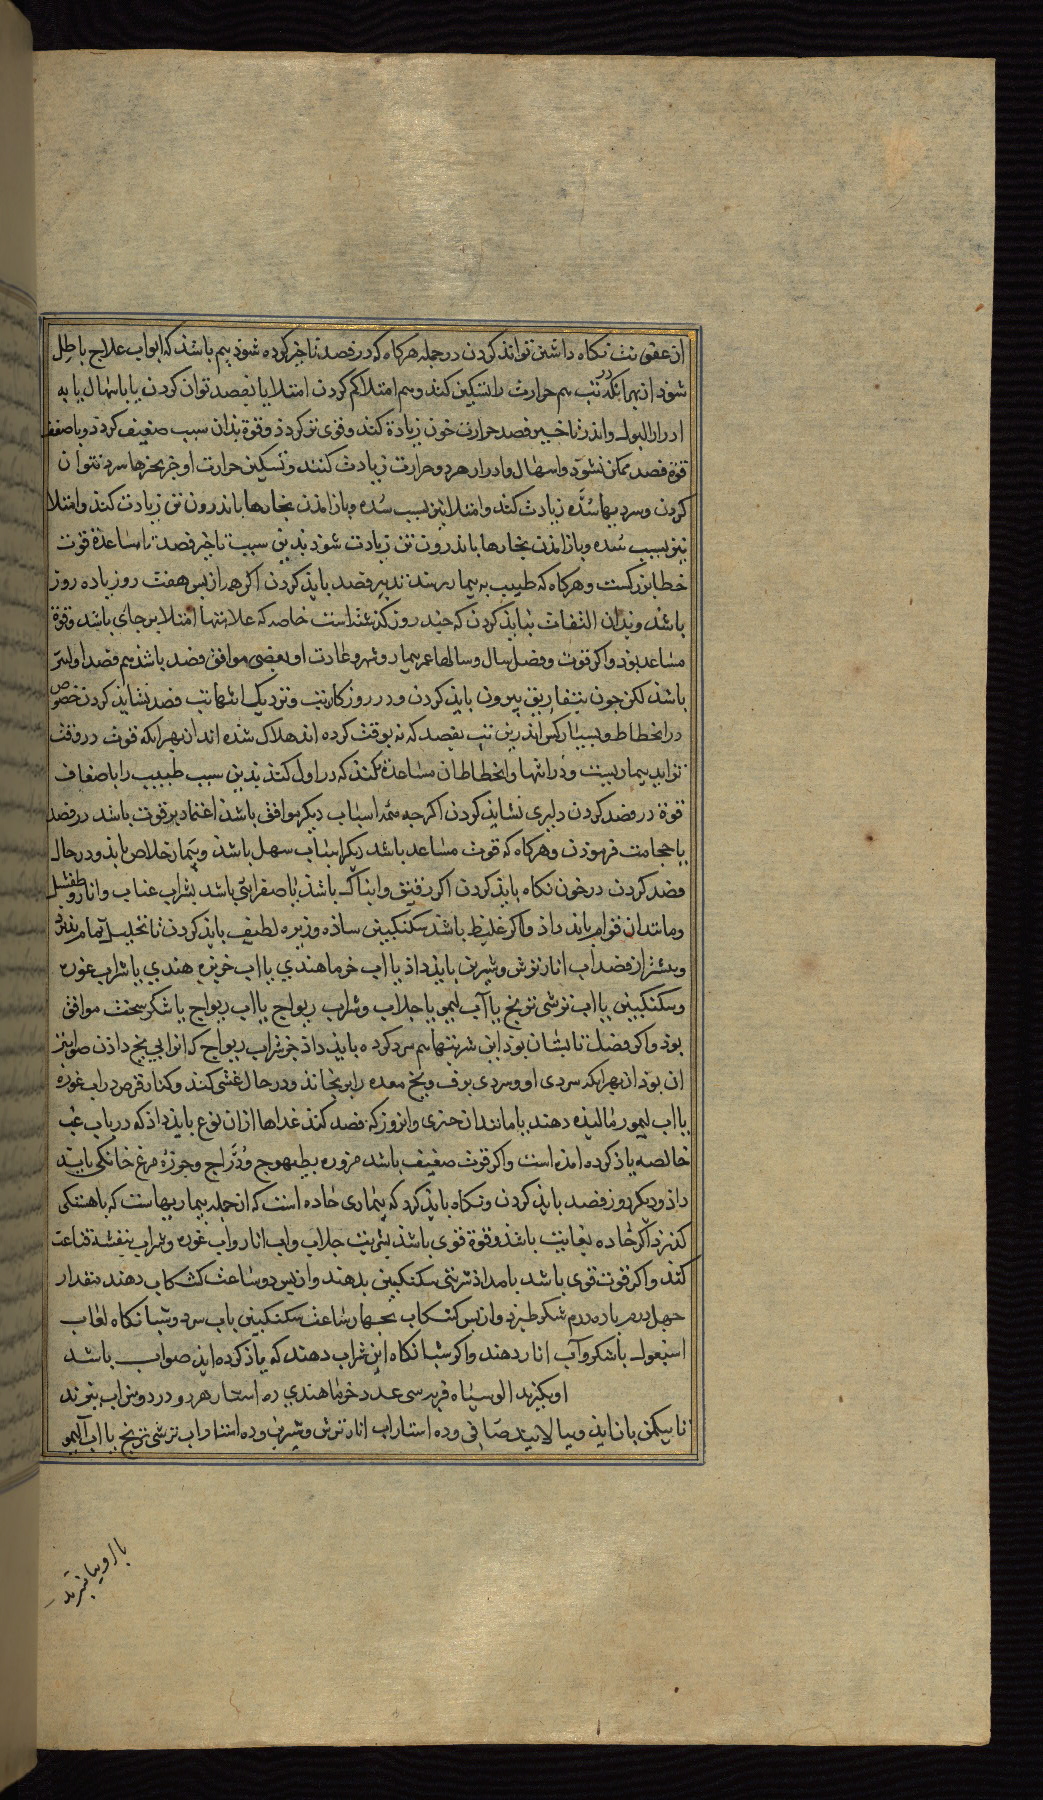 از عفونت نکاه داشتن تواند کردن در جمله هرکاه که در فصد تاخیر کرده شود بیم باشذ که ابواب علاج باطل
شوذ از بهر انکه در تب هم حرارت را تسکین کنند و هم امتلا کم کردن امتلا یا بفصد توان کردن یا باسهال یا به
ادرار البول و اندر تاخیر فصد حرارت خون زیادة کند و قوی تر کردذ و قوة بذان سبب ضعیف کردذ و با ضعف
قوة فصد ممکن نشوذ و اسهال و ادرار هر دو حرارت زیادت کنند و تسکین حرارت او جز بچیزها سرد نتوان
کردن و سردیها سُدَّه زیادت کند و امتلا نیز بسبب سُده و بازماندن بخارها باندرون تن زیادت کند و امتلا
نیز بسبب سُده و بازماندن بخارها باندرون تن زیادت شوذ بدین سبب تاخیر فصد با مساعدة قوت
خطا بزرکست و هرکاه که طبیب به بیمار رسد تدبیر فصد بایذ کردن اکر هر از بس هفت روز یا ده روز
باشد و بذان التفات نبایذ کردن که جند روز کذشته است خاصه که علامتها امتلا بر جای باشد و قوة
مساعد بوذ و اکر قوت و فصل سال و سالهاء عمر بیمار و شهر و عادت او بعضی موافق فصد باشذ هم فصد اولیتر
باشذ لکن جون بتفاریق بیرون بایذ کردن و در روز کار تب و نزدیک انتهاء تب فصد نشایذ کردن خصوص
در انحطاط و بسیار کس اندرین تب بفصد که نه بوقت کرده اند هلاک شده اند از بهر انکه قوت در وقت
تزاید بیمار بیست و در انتها و انحطاط ان مساعدة نکند که در اول کند بذین سبب طبیب را با ضعاف
قوة در فصد کردن دلیری نشایذ کردن اکر جه همه اسباب دیکر موافق باشذ اعتماد بر قوت باشد در فصد
یا حجامت فرموذن و هرکاه که قوت مساعد باشد دیکر اسباب سهل باشذ و بیمار خلاص یابذ و در حال
فصد کردن در خون نکاه بایذ کردن اکر رقیق و ابناک باشذ یا صفرایی باشد بشراب عناب و انار و طفشیل
و مانند ان قوام بایذ داذ و اکر غلیظ باشذ سکنکبین ساذه و زیره لطیف بایذ کردن تا تحلیل تمام بذیرد
و بیشتر از فصد اب انار ترش و شیرین بایذ داذ یا اب خرما هندی یا اب خربزه هندی یا شراب غوره
و سکنکبین یا اب ترشی ترنج یا آب لیمو یا جلاب و شراب ریواج یا اب ریواج یا شکر سخت موافق
بوذ و اکر فصل تابستان بوذ این شربتها هم سرد کرده بایذ داذ جز شراب ریواج که انرا بی یخ داذن صوابتر
ان بوذ از بهر انکه سردی او و سردی برف و یخ معده را برنجاند و در حال غشی کند و کنار قرص در اب غوره
یا اب لیمو مالیده دهند یا مانند ان جیزی و انروز که فصد کند غداها از ان نوع بایذ داذ که در باب غب
خالصه یاذ کرده امذه است و اکر قوت ضعیف باشد مزوره بطیهوج و دُرَّاج و جوزۀ مرغ خانکی باید
داذ و دیکر روز فصد بایذ کردن و نکاه بایذ کرد که بیماری حاده است که از جمله بیماریهاست که باهستکی
کذرد اکر حاده بغایت باشذ و قوة قوی باشذ بشربت جلاب و اب انار و اب غوره و شراب بنفشه قناعت
کند و اکر قوت قوی باشد بامداذ شربتی سکنکبین بدهند و از بس دو ساعت کشکاب دهند مقدار
جهل درم با ده درم شکر طبرزد و از بس کشکاب بجهار ساعت سکنکبین باب سرد و شبانکاه لعاب
اسبغول باشکر و آب انار دهند و اکر شبانکاه این شراب دهند که یاذ کرده ایذ صواب باشد
او بکیرند الو سیاه فربه سی عدد خرما هندی ده استار هر دو در دو من اب ببزند
تا بیکمن باز ایذ و ببالایند صافی و ده استار اب انار ترش و شیرین و ده استار اب ترشی ترنج یا اب آلیمو
با او بیامیزند